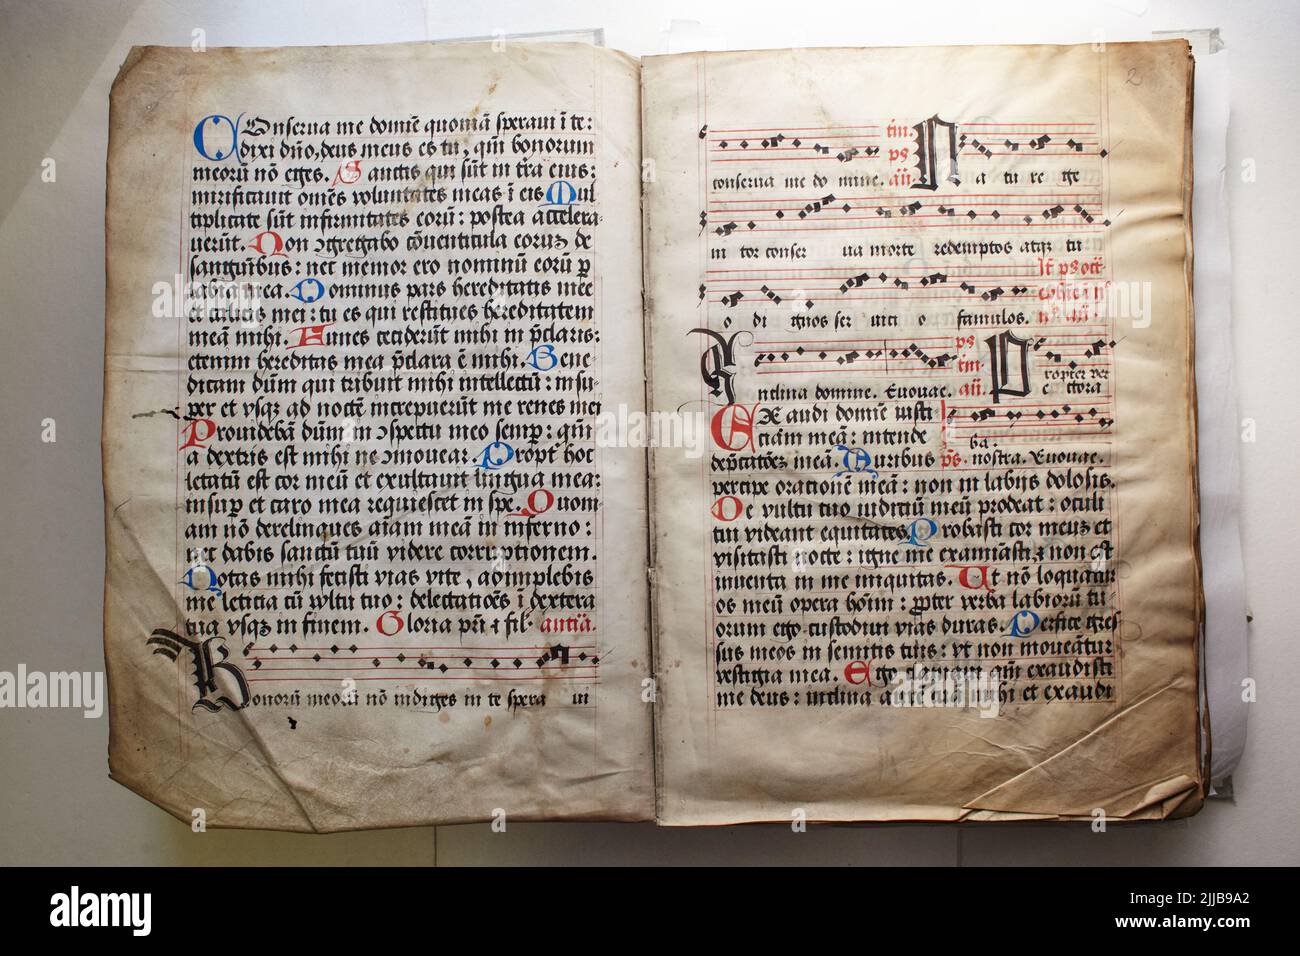 COnserua me domīe quoniā speraui ī te:
dixi dn̄o, deus meus es tu, qm̄ bonorum
meorū nō eges. Sanctis qui sūt in tr̄a eius:
mirificauit om̄es voluntates meas ī eis Mul
tiplicate sūt infirmitates eorū: postea accelera-
uerūt. Non ꝯgregabo cōuenticula eorum de
sanguībus: nec memor ero nominū eorū ꝑ
labia mea. Dominus pars hereditatis mee
et calicis mei: tu es qui restitues hereditatem
meā mihi. Funes ceciderūt mihi in p̄claris:
etenim hereditas mea p̄clara ē mihi. Bene-
dicam dūm qui tribuit mihi intellectū: insu-
per et vsqꝫ ad noctē increpuerūt me renes mei
Prouidebā dūm in ꝯspectu meo semp: qm̄
a dextris est mihi ne ꝯmouear. Propt̄ hoc
letatū est cor meū et exultauit lingua mea:
insuꝑ et caro mea requiescet in spe. Quoni-
am nō derelinques aīam meā in inferno:
nec dabis sanctū tuū videre corruptionem.
Notas mihi fecisti vias vite, adimplebis
me leticia cū vultu tuo: delectatiōes ī dextera
tua vsqꝫ in finem. Gloria pr̄i ⁊ fil. antīa.
Bonorū meorū nō indiges in te spera ui
2
conserua me do mine. Na tu re ge
in tor conser ua morte redemptos atqꝫ tu
o di gnos ser uici o famulos.
Inclina domine. Euouae. Propter ver
EXaudi domīe iusti e ctora
ciam meā: intende ba:
dep̄catōeꝫ meā. Auribus ps. nostra. Euouae.
percipe orationē meā: non in labijs dolosis.
De vultu tuo iudiciū meū prodeat: oculi
tui videant equitates. Probasti cor meuꝫ et
visitasti nocte: igne me examīasti ⁊ non est
inuenta in me iniquitas. Ut nō loquatur
os meū opera hoīm: ꝓpter verba labiorū tu-
orum ego custodiui vias duras. Perfice gres
sus meos in semitis tuis: vt non moueātur
vestigia mea. Ego clamaui qm̄ exaudisti
me deus: inclina aurē tuā mihi et exaudi
alamy
Image ID: 2JJB9A2
www.alamy.com